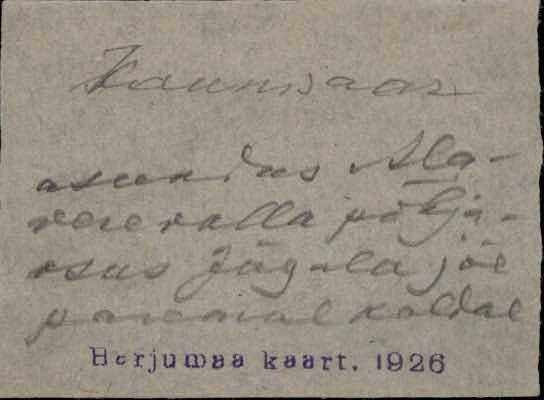 Kaunissaar
asundus Ala-
vere valla põhja-
osas Jägala jõe
paremal kaldal
Harjumaa kaart. 1926